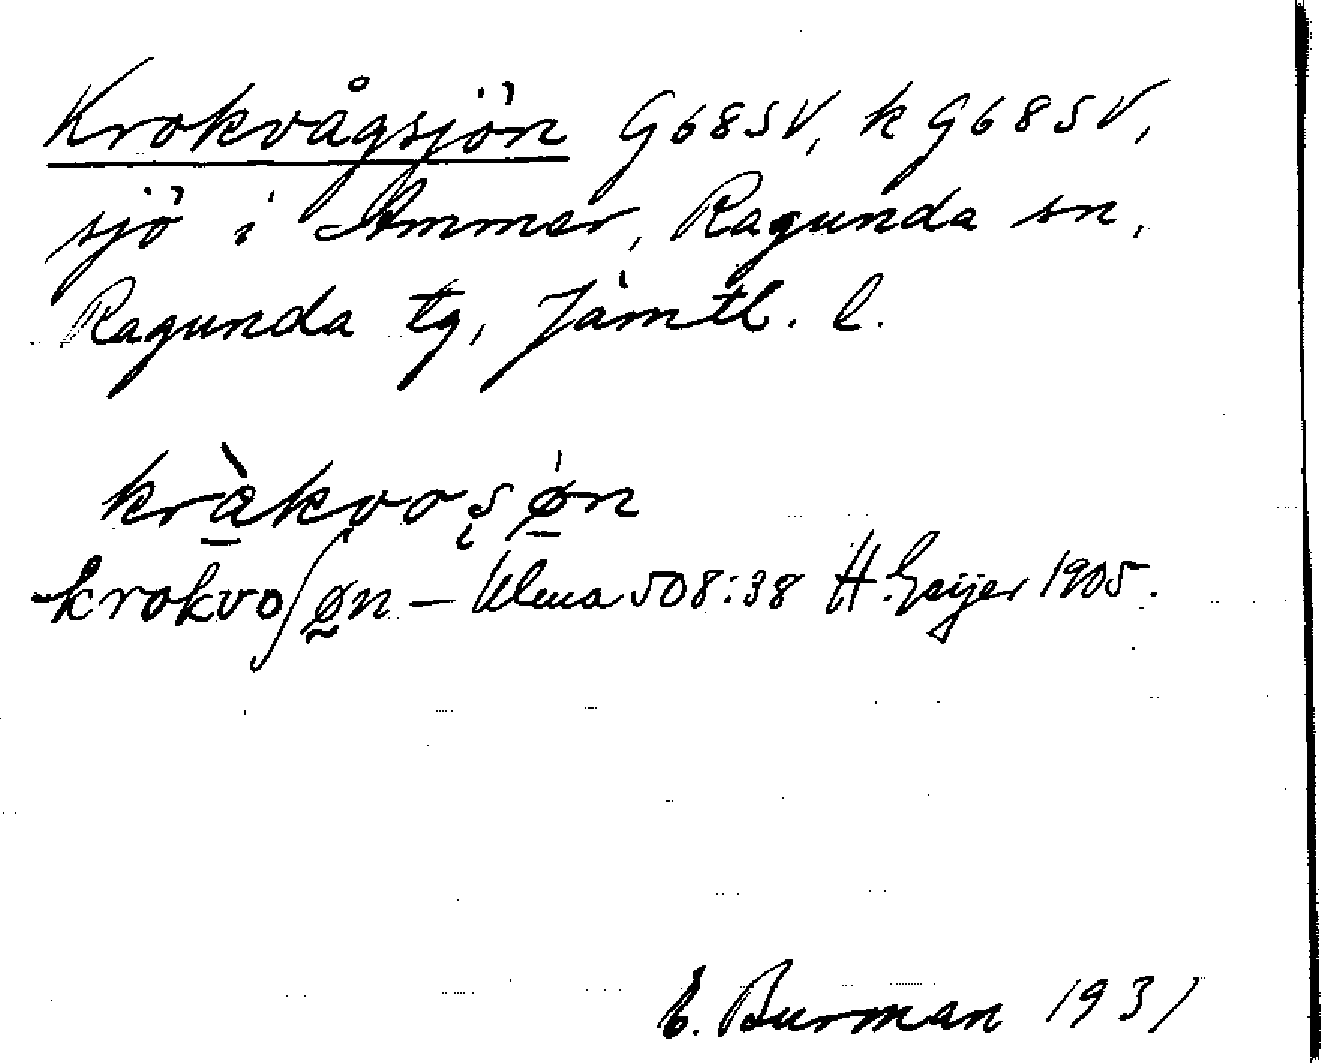 Krokvågsjön G68SV, k G68SV,
sjö i Ammer, Ragunda sn,
Ragunda tg, Jämtl. l.
kràkvoşøn
krokvoʃøn – Ulma 508:38 H. Geijer 1905.
E. Burman 1931